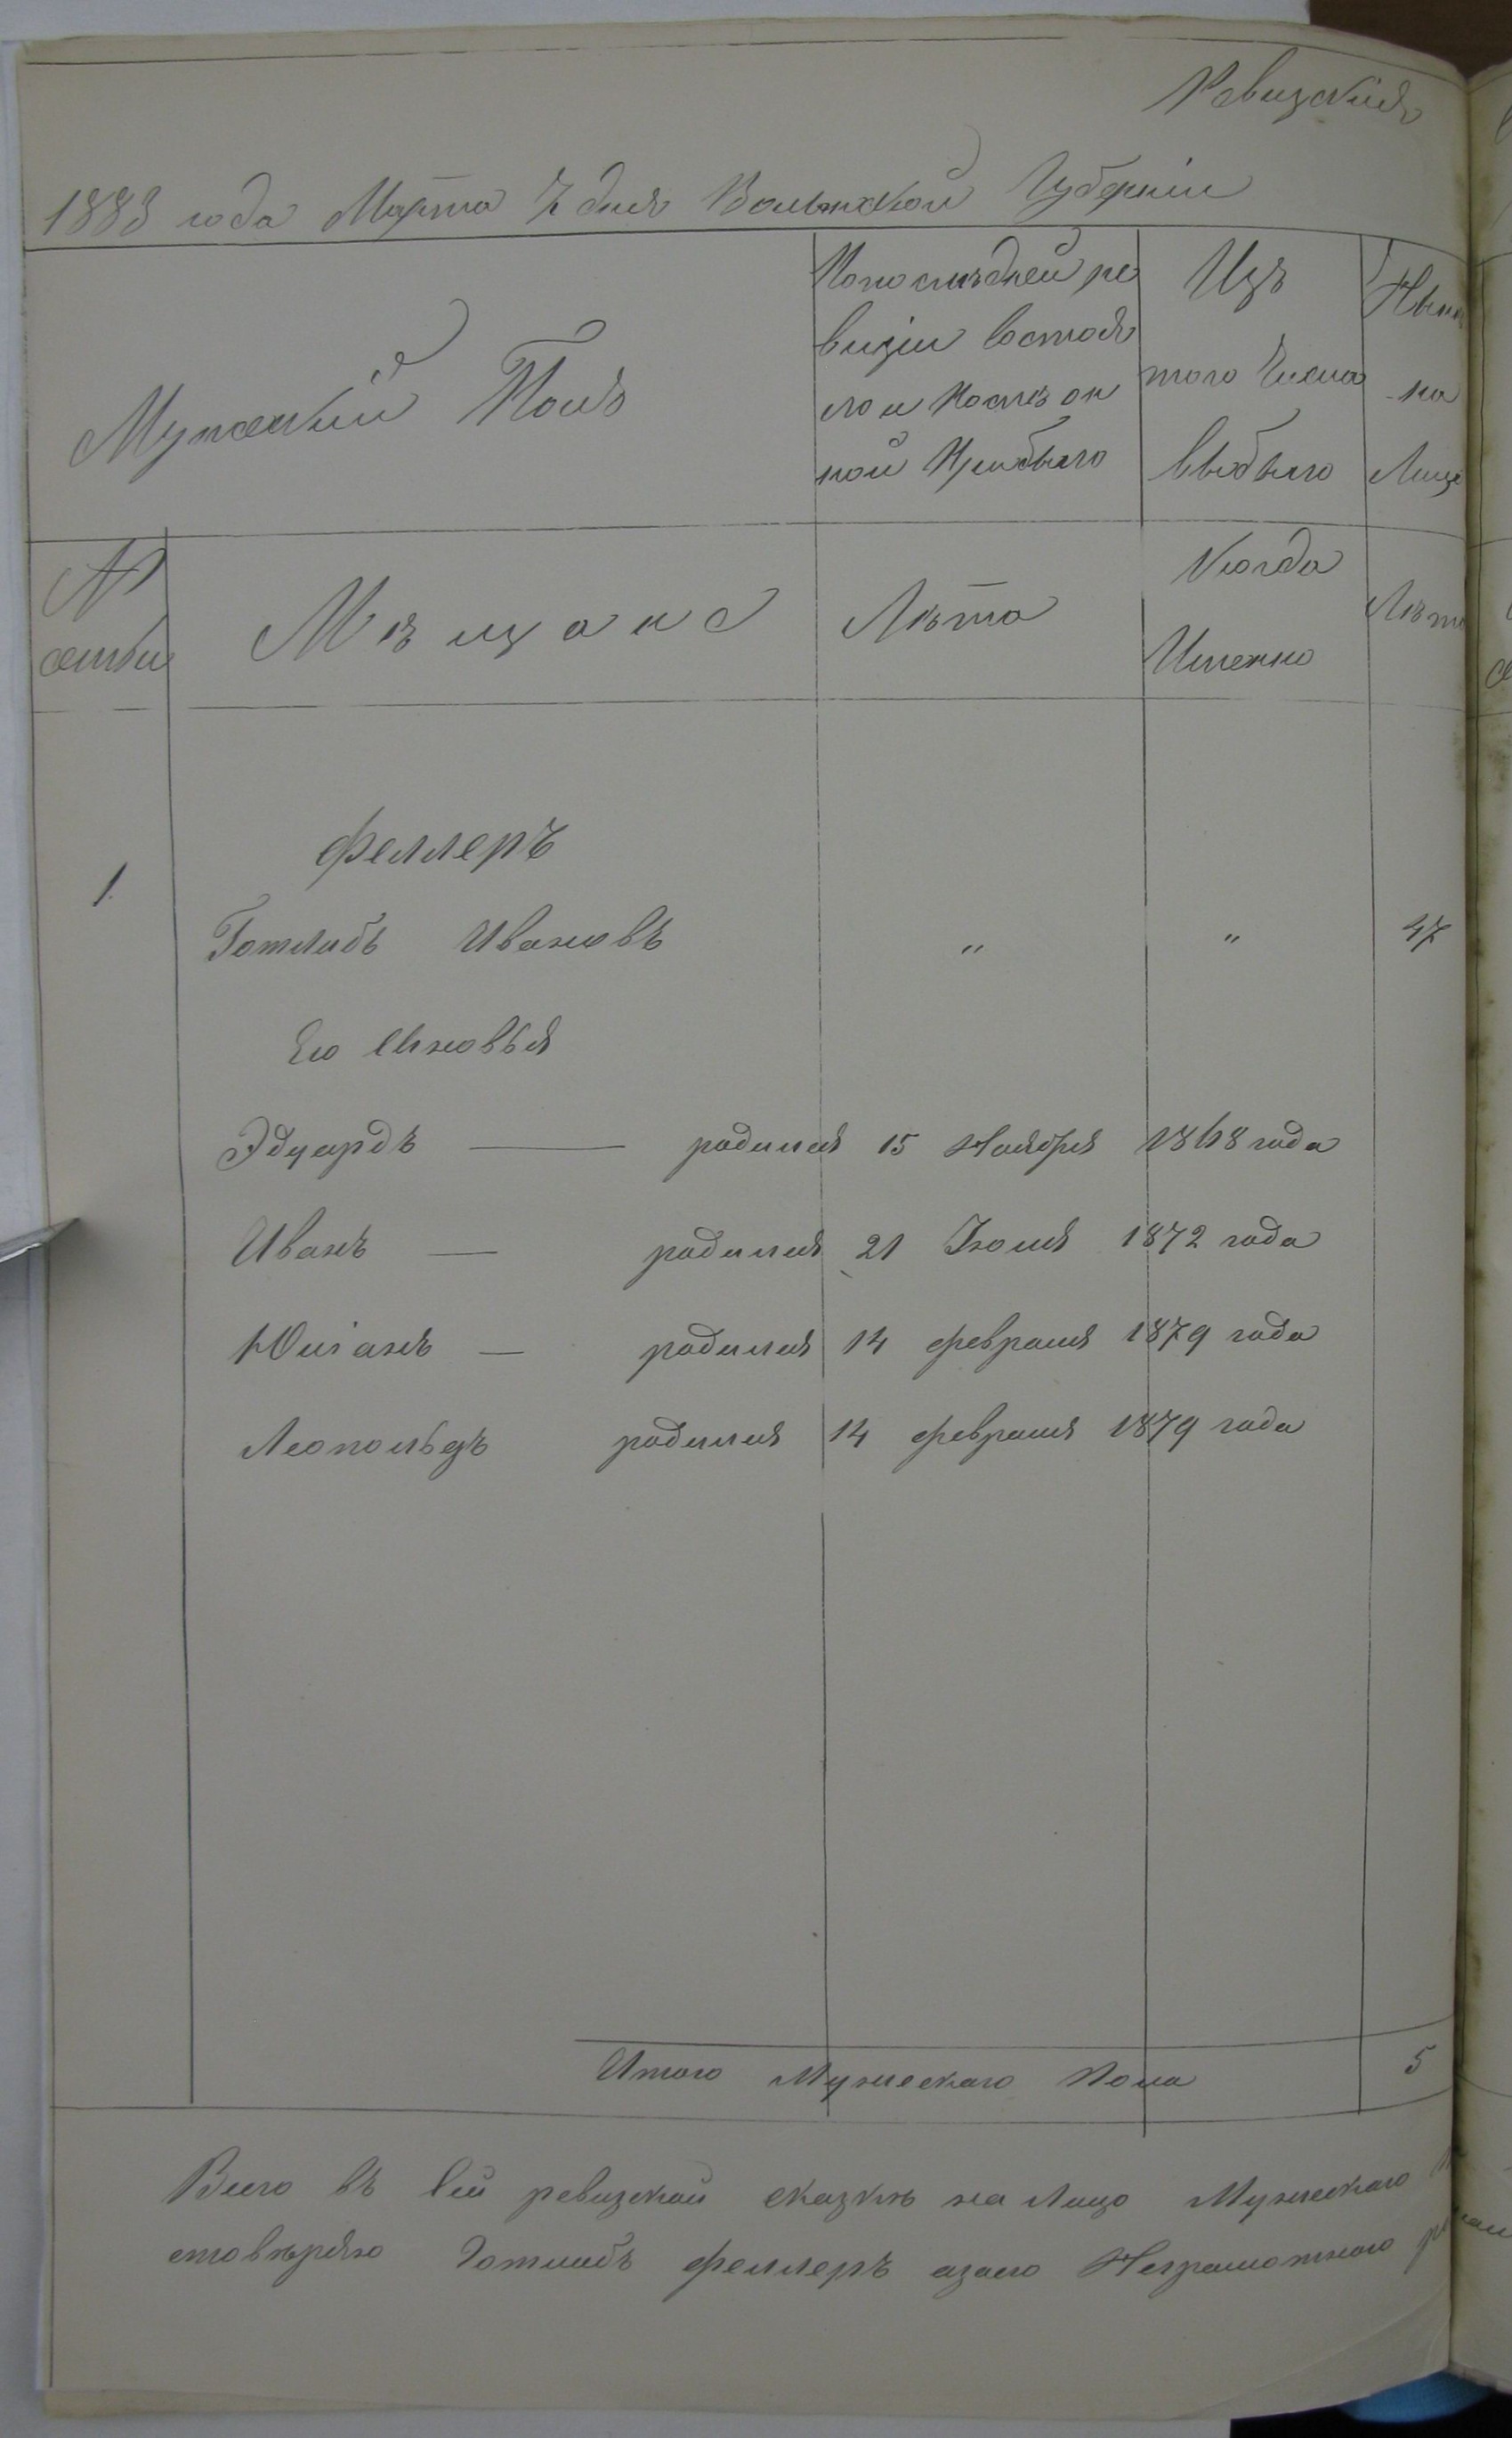 Ревизская
1883 года Марта 7 дня Волынской Губерніи
Мужескій Полъ
По последней ре
визіи состоя
ло и После он
ной Прибыло
Изъ
того Числа
выбыло
Ныне
на
Лице
№
семьи
Мѣщане
Лѣта
Когда
Именно
Лѣта
1.
Феллеръ
Готлибъ Ивановъ " " 47
Его Сыновья
Эдуардъ — родился 15 Ноября 1868 года
Иванъ — родился 21 Іюля 1872 года
Юліанъ — родился 14 февраля 1879 года
Леопольдъ родился 14 февраля 1879 года
Итого Мужескаго Пола 5
Всего въ сей ревизской сказкѣ на Лицо Мужескаго
стовѣряю Готлибъ Феллеръ азаего Неграмотнаго